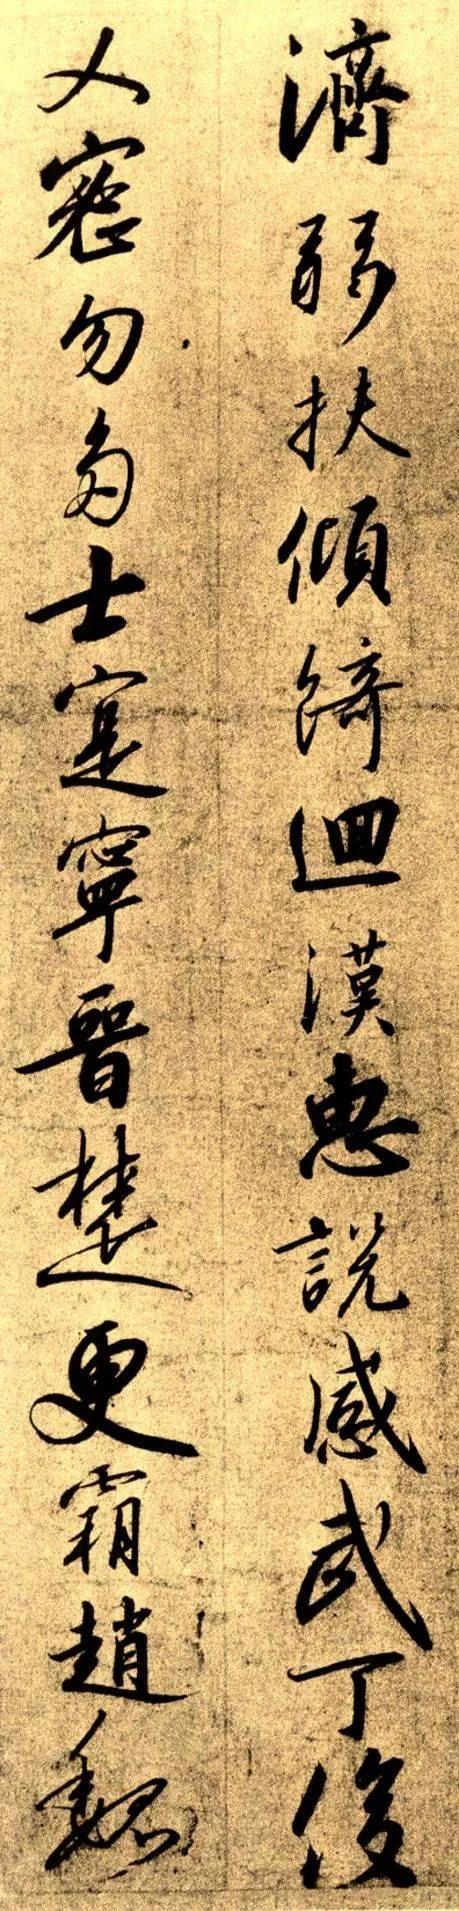 濟弱扶傾綺迴漢惠說感武丁俊
乂密勿多士寔寧晉楚更霸趙魏